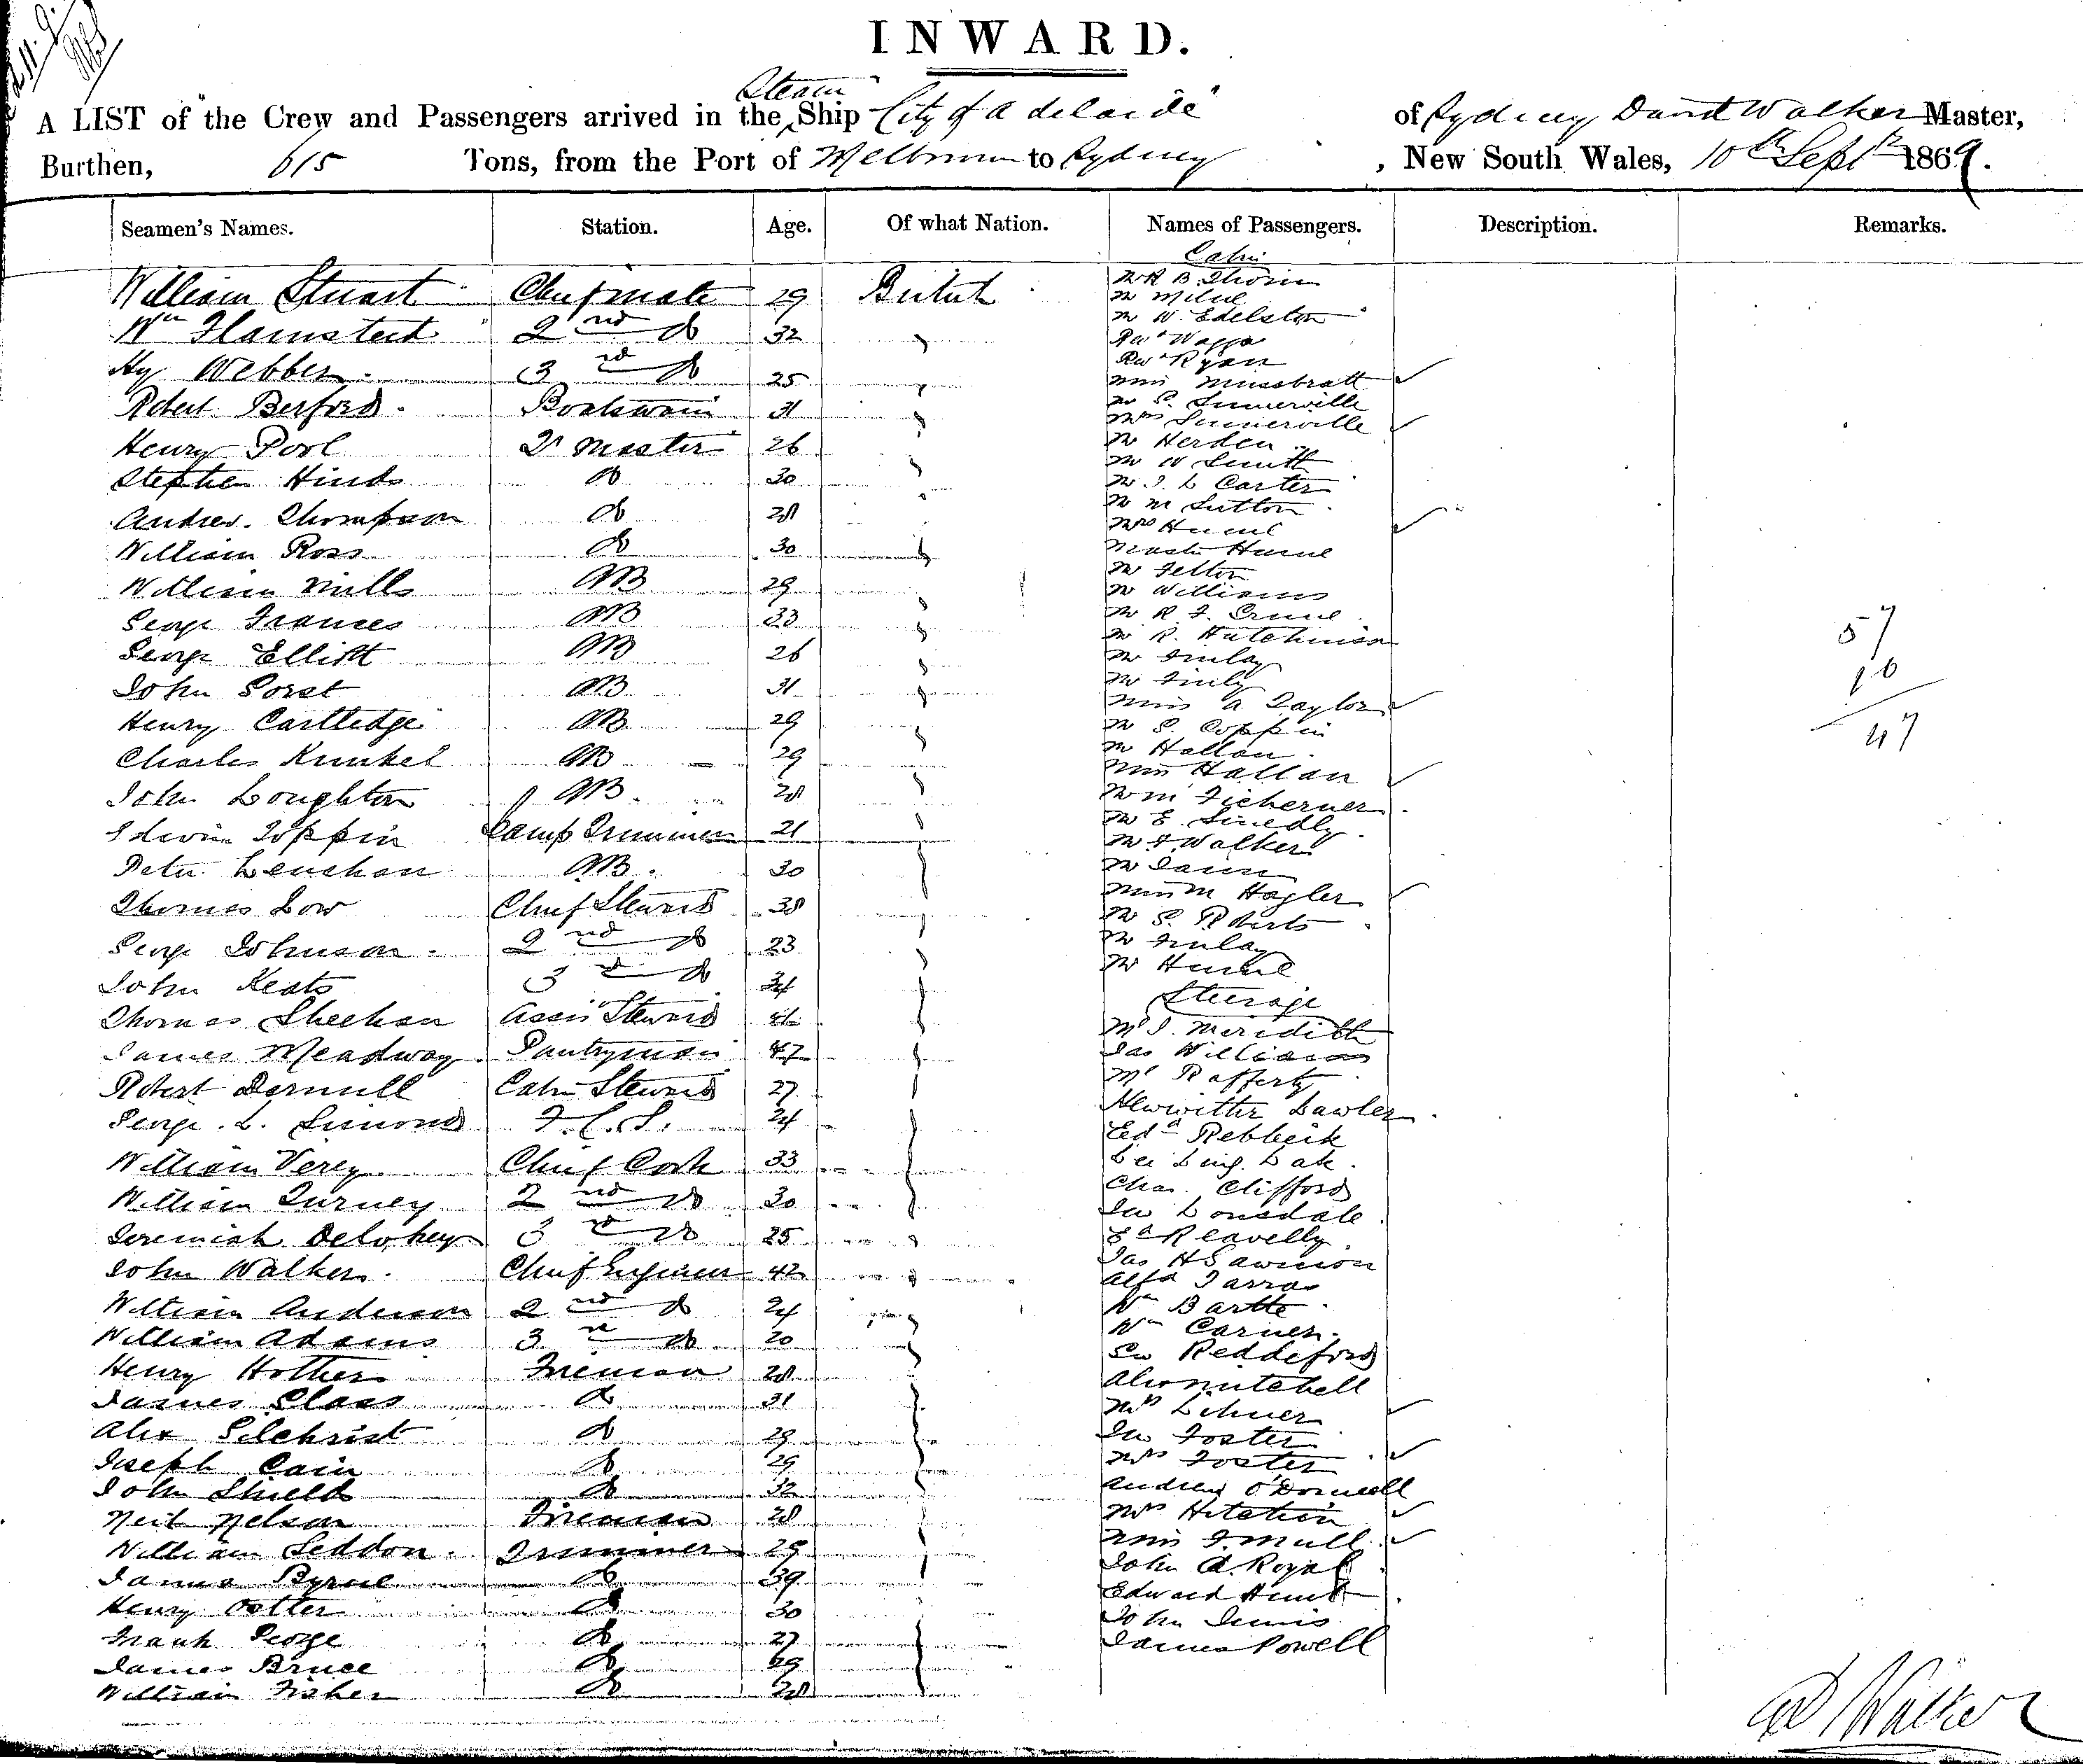 INWARD.
Steam
A LIST of the Crew and Passengers arrived in the Ship "City of Adelaide" of Sydney David Walker Master,
Burthen, 615 Tons, from the Port of Melbourne to Sydney, New South Wales, 10th Septr 1869.
Seamen's Names. Station. Age. Of what Nation. Names of Passengers. Description. Remarks.
William Stuart Chief mate 29 British
Wm Flamsteed 2nd do 32 "
Hy Webber 3rd do 25 "
Robert Berford Boatswain 31 "
Henry Pool Qr Master 26 "
Stephen Hinds do 30 "
Andrew Thompson do 28 "
William Ross do 30 "
William Mills AB 29 "
George Frances AB 33 "
George Elliott AB 26 "
John Porst AB 31 "
Henry Cartledge AB 29 "
Charles Kunkel AB 29 "
John Loughton AB 28 "
Edwin Toppin Lamp Trimmer 21 "
Peter Lenehan AB 30 "
Thomas Low Chief Steward 38 "
George Johnson 2nd do 23 "
John Keats 3rd do 24 "
Thomas Sheehan Assis Steward "
James Meadway Pantryman 47 "
Robert Dermill Cabin Steward 27 "
George L. Simons F.C.S. 24 "
William Verey Chief Cook 33 "
William Turney 2nd do 30 "
Jeremiah Delohey 3rd do 25 "
John Walker Chief Engineer 42 "
William Anderson 2nd do 24 "
William Adams 3rd do 20 "
Henry Hother Fireman 28 "
James Class do 31 "
Alex Gilchrist do 29 "
Joseph Cain do 29 "
John Shield do 32 "
Neil Nelson Fireman 28 "
William Seddon Trimmer 29 "
James Byrne do 39 "
Henry Potter do 30 "
Frank George do 27 "
James Bruce do 29 "
William Fisher do 28 "
Cabin
Mr R B Thorn
Mr Milne
Mr W. Edelston
Revd
Revd Ryan
Miss Mussbratt
Mr P. Summerville
Mrs Summerville
Mr Herden
Mr W Smith
Mr J. L Carter
Mr M Sutton
Mrs Hume
Master Hume
Mr Felton
Mr Williams
Mr R. F.
Mr R. Hutchinson
Mr Finlay
Mr Finly
Miss A Taylor
Mr S. Coppin
Mr Hallan
Miss Hallan
Mr M Ficherner
Mr E. Smedly
Mr F Walker
Mr Dann
Miss M Hagler
Mr S. Roberts
Mr Finlay
Mr Hume
Steerage
Mr J. Meridith
Jas Williams
Mr Rafferty
Lawler
Edd Rebbeck
Lee Ling Lak
Chas. Clifford
Jno Lonsdale
Ed Reavelly
Jas H Sawnson
Alfd Farras
Wm Bartte
Wm Carner
Reddeford
Alex Mitchell
Mrs Lehner
Jno Foster
Mrs Foster
Andrew O'Donnell
Mrs Hitchin
Miss F. Mull
John A. Royal
Edward Hunt
John Lewis
James Powell
57
10
47
D Walker